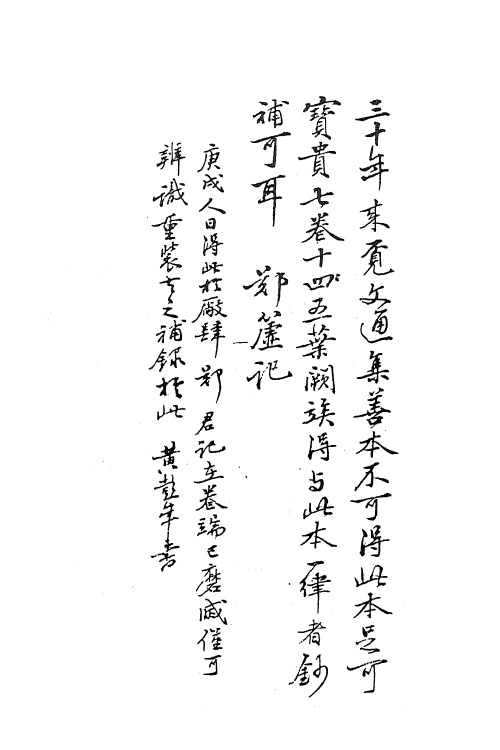 三十年来覓文通集善本不可得此本足可
寳貴七卷十四五葉闕族得与此本一律者鈔
補可耳　鄭簠記
庚戌人日得此於廠肆鄭君記在卷端已磨滅僅可
辨識重裝補錄於此　黄彭年書